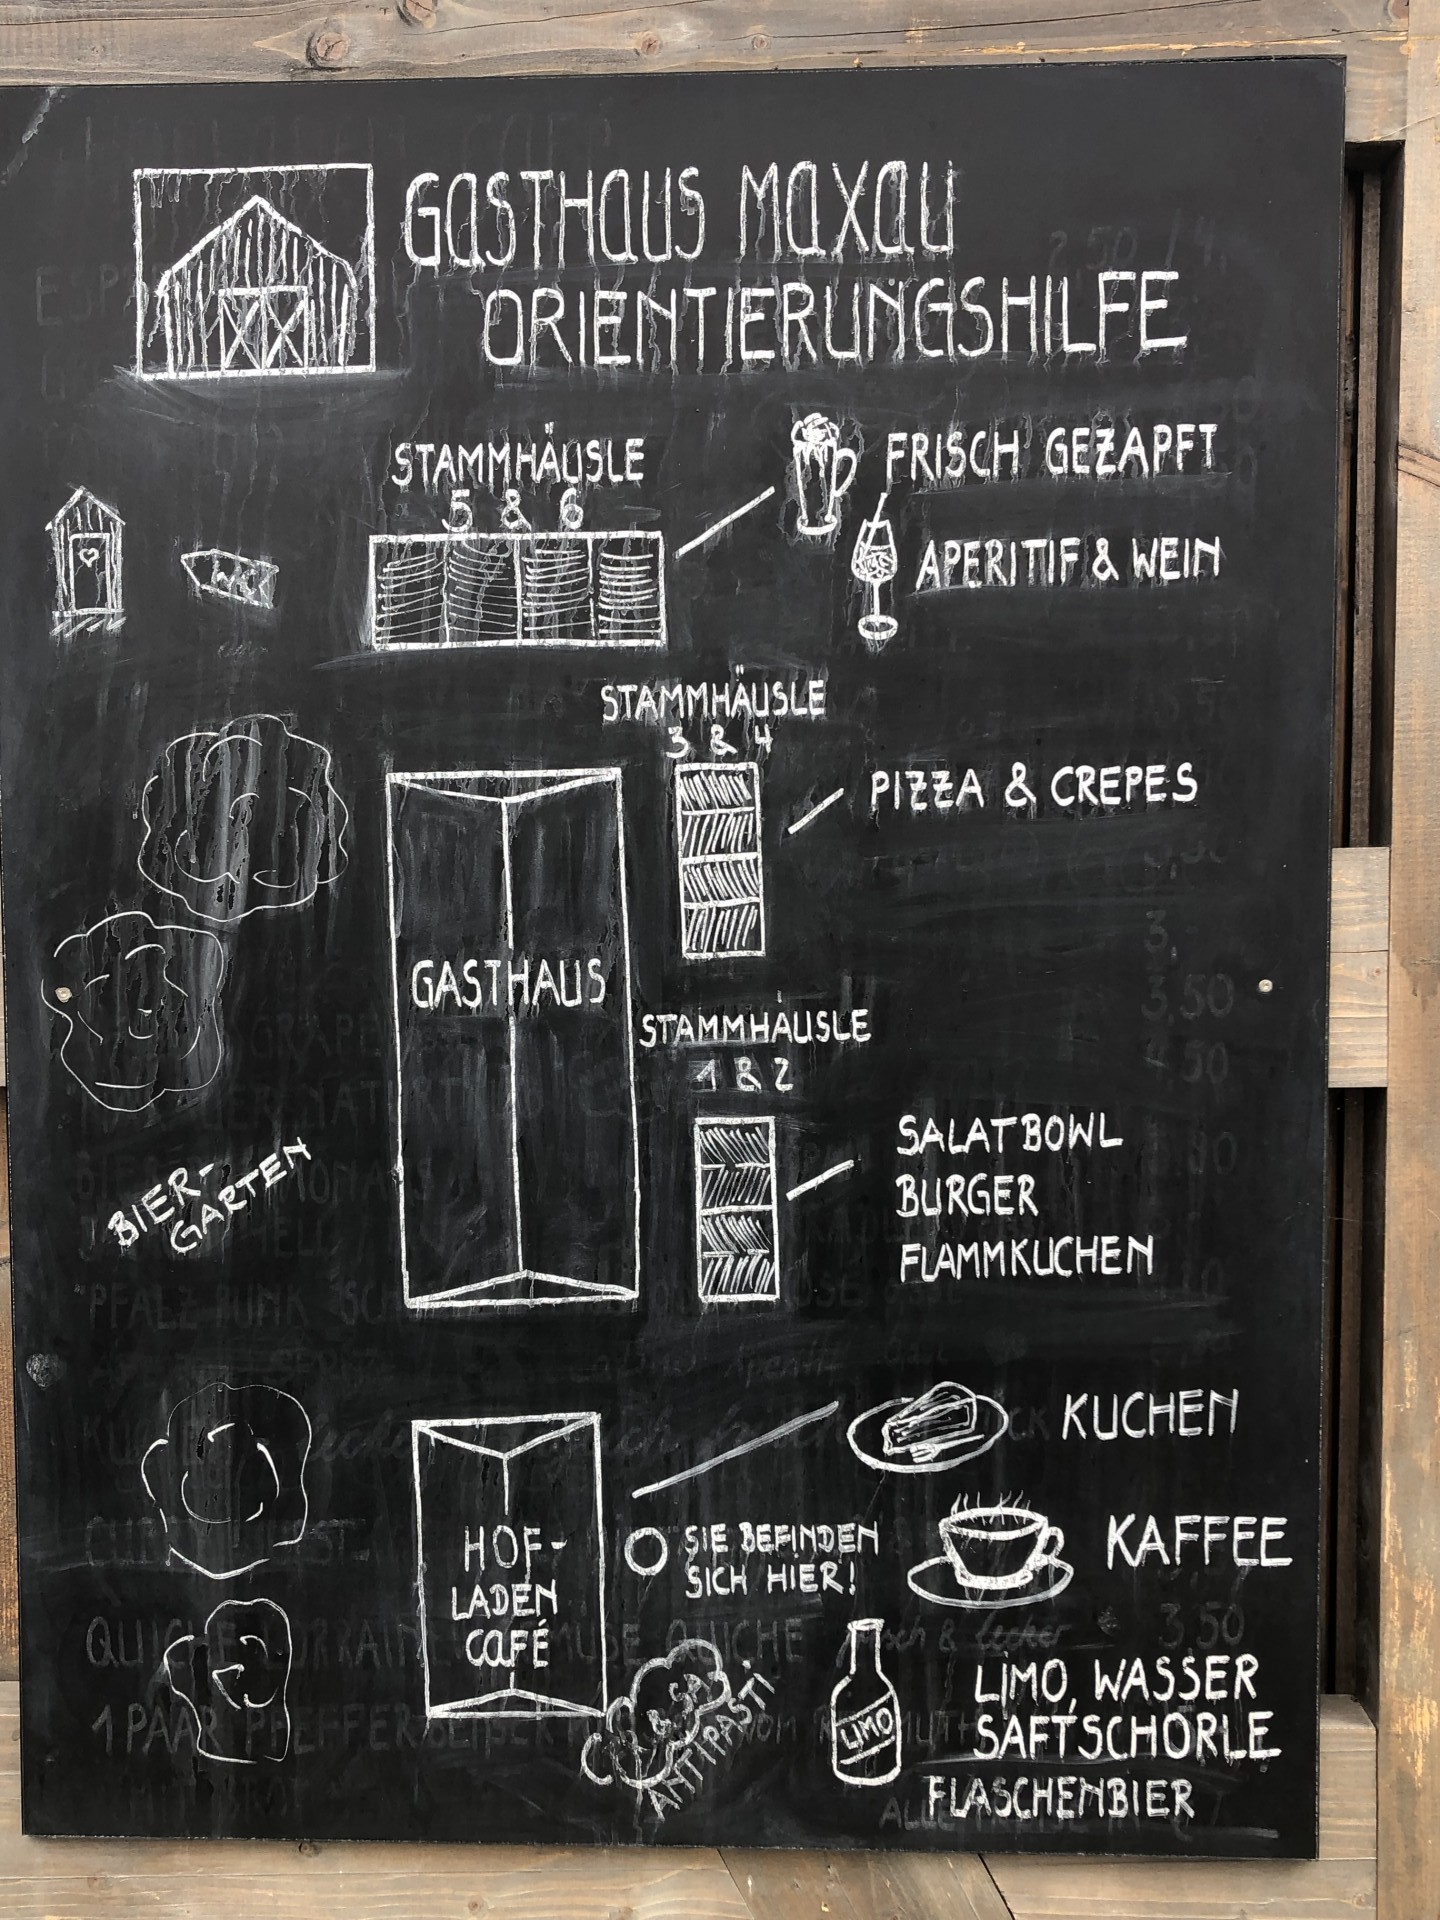 GASTHAUS MAXAU
ORIENTIERUNGSHILFE
STAMMHÄUSLE
5 & 6
FRISCH GEZAPFT
APERITIF & WEIN
WC
STAMMHÄUSLE
3 & 4
PIZZA & CREPES
GASTHAUS
STAMMHÄUSLE
1 & 2
SALATBOWL
BURGER
FLAMMKUCHEN
BIER-
GARTEN
KUCHEN
HOF-
LADEN
CAFÉ
SIE BEFINDEN
SICH HIER!
KAFFEE
ANTIPASTI
LIMO
LIMO, WASSER
SAFTSCHORLE
FLASCHENBIER